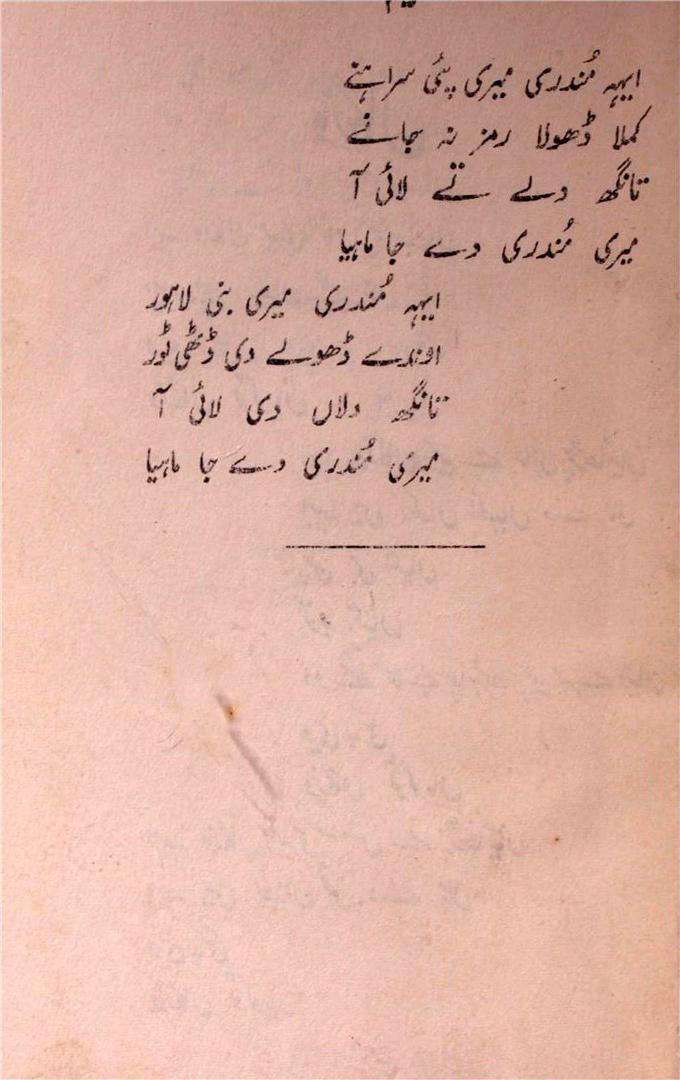 ایہہ مُندری میری پئی سراہنے
کملا ڈھولا رمز نہ جانے
تانگھ دلے تے لائی آ
میری مُندری دے جا ماہیا
ایہہ مُندری میری بنی لاہور
اوندے ڈھولے دی ڈٹھی ٹور
تانگھ دلاں دی لائی آ
میری مُندری دے جا ماہیا